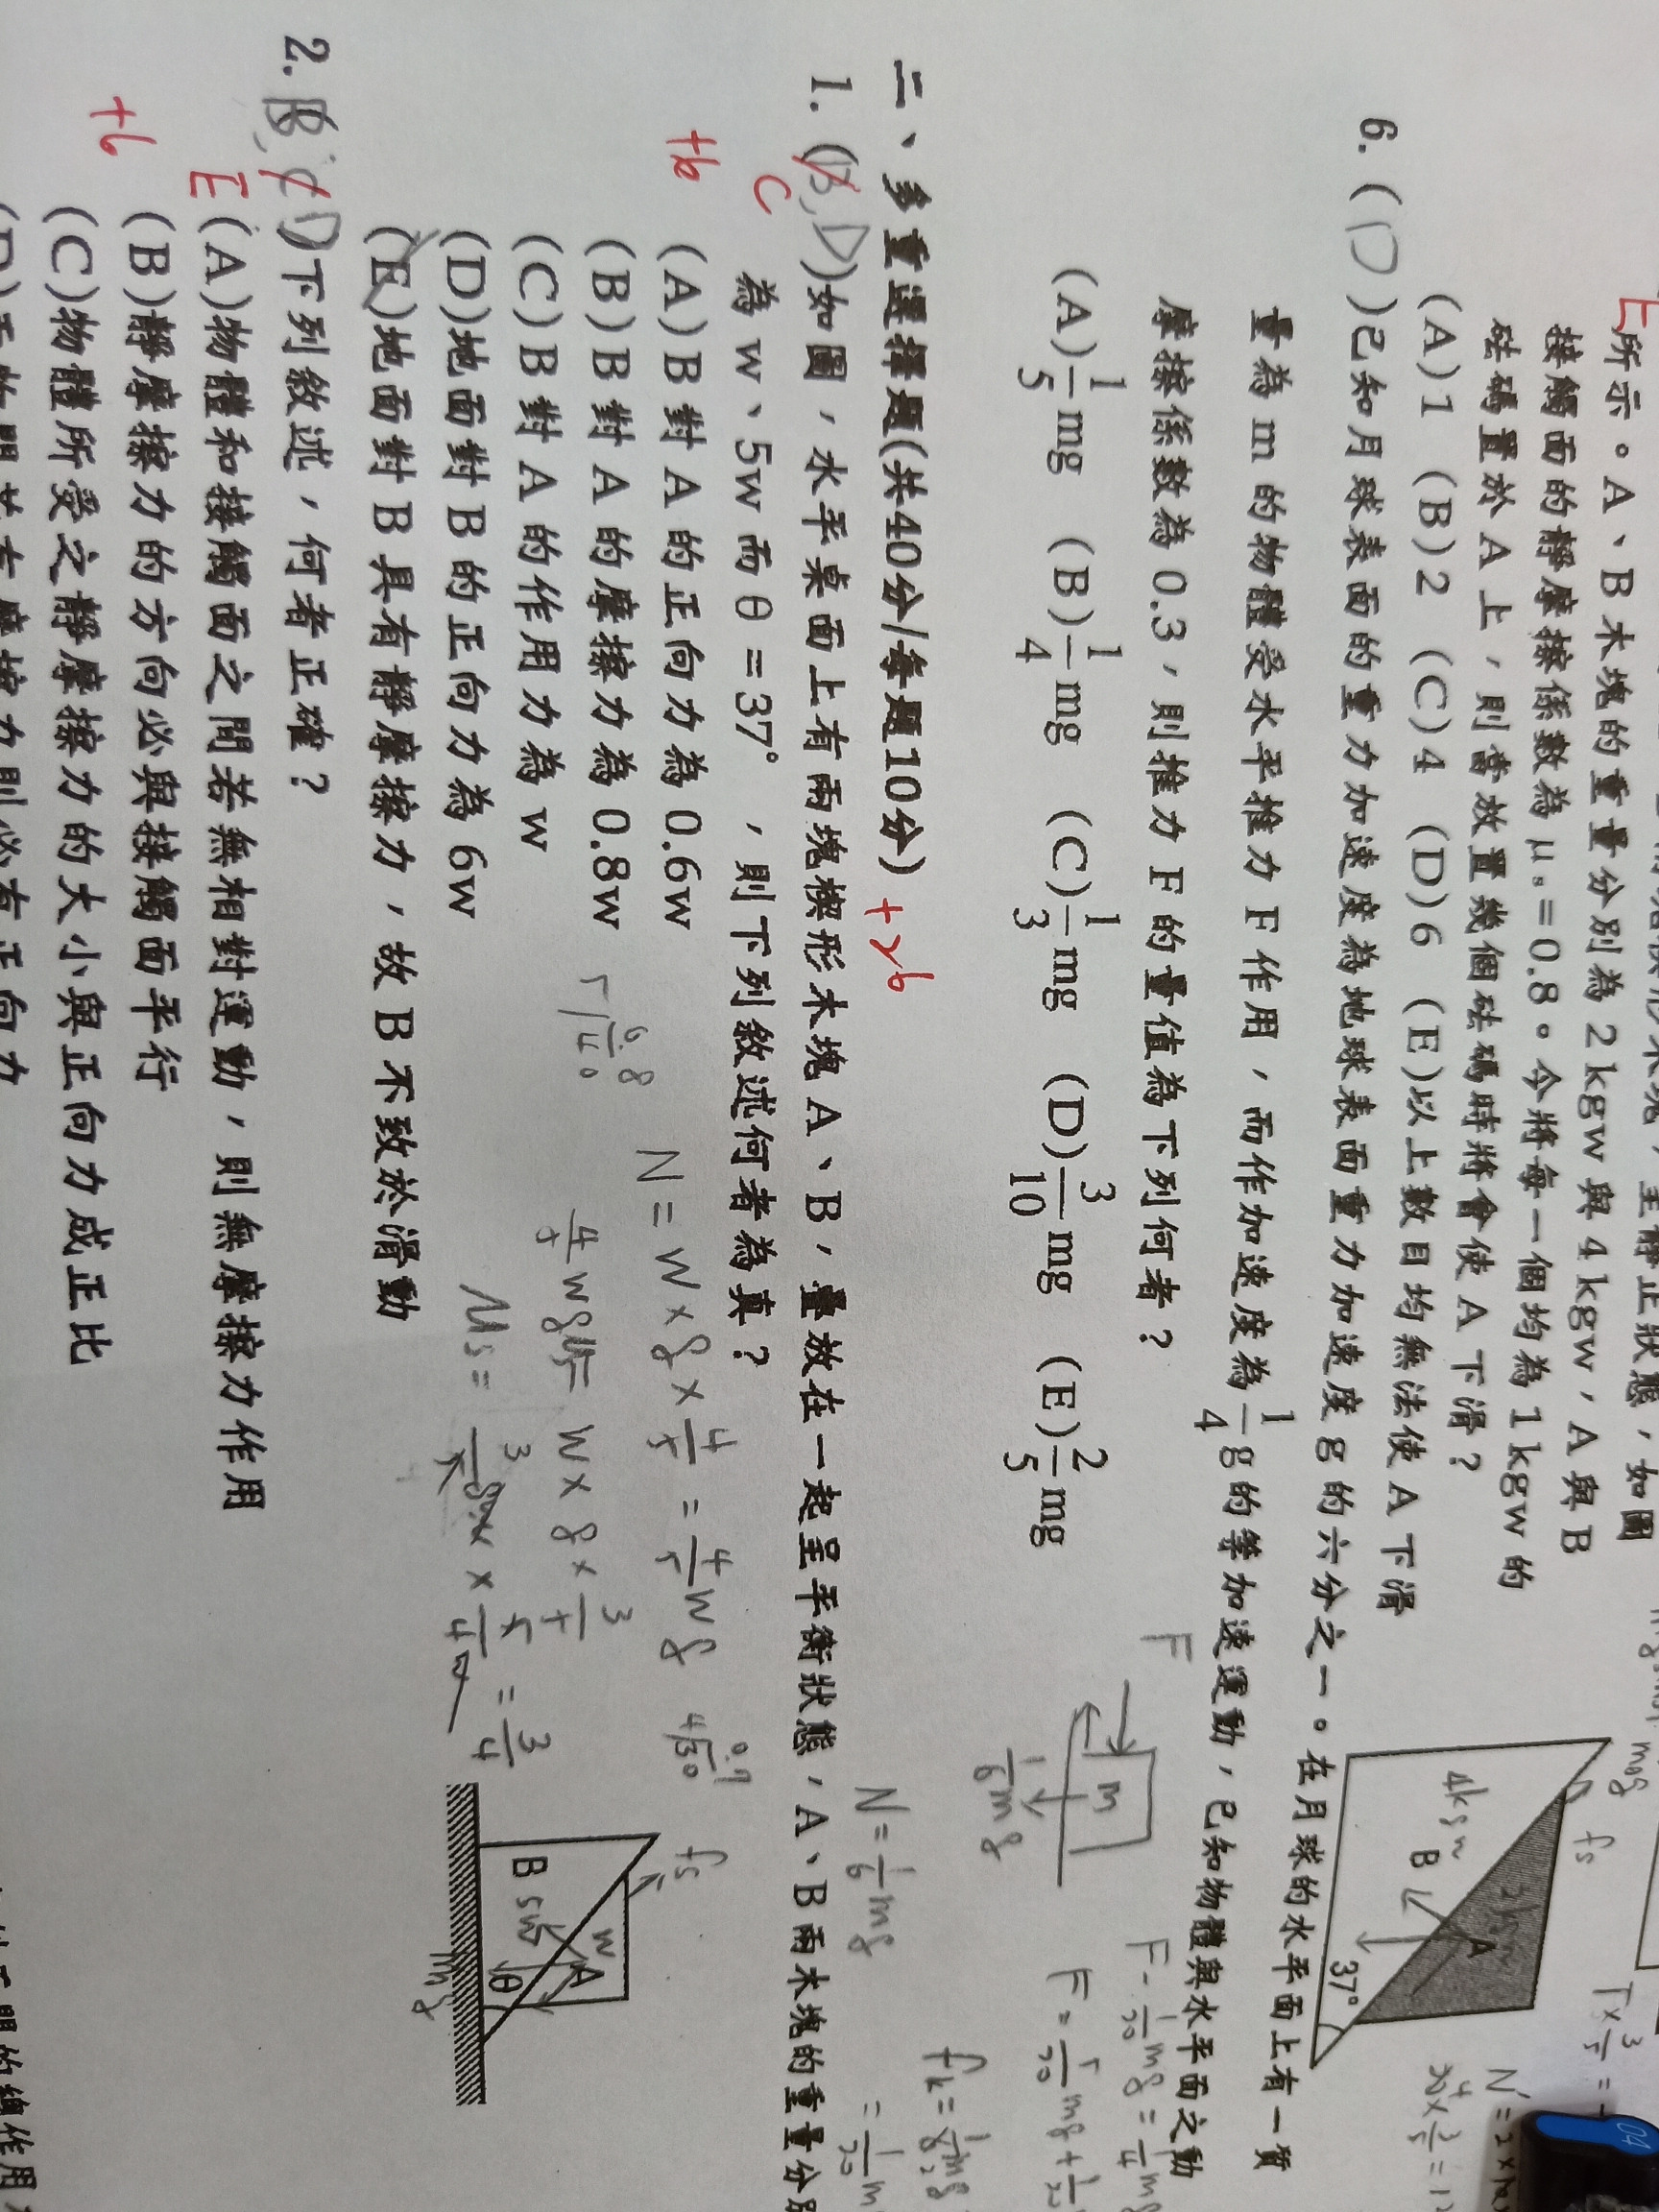 所示。A、B木塊的重量分別為2kgw與4kgw，A與B
接觸面的靜摩擦係數為μs=0.8。今將每一個均為1kgw的
砝碼置於A上，則當放置幾個砝碼時將會使A下滑？
(A)1 (B)2 (C)4 (D)6 (E)以上數目均無法使A下滑
4kgw
B
A
37°
fs
6. (D)已知月球表面的重力加速度為地球表面重力加速度g的六分之一。在月球的水平面上有一質
量為m的物體受水平推力F作用，而作加速度為1/4g的等加速運動，已知物體與水平面之動
摩擦係數為0.3，則推力F的量值為下列何者？
(A)1/5mg (B)1/4mg (C)1/3mg (D)3/10mg (E)2/5mg
F
m
1/6mg
N=1/6mg
F-1/20mg=1/4mg
二、多重選擇題(共40分/每題10分) +26
1. (B,D)如圖，水平桌面上有兩塊楔形木塊A、B，疊放在一起呈平衡狀態，A、B兩木塊的重量分別
C
為w、5w而θ=37°，則下列敘述何者為真？
+6
(A)B對A的正向力為0.6w
(B)B對A的摩擦力為0.8w
(C)B對A的作用力為w
(D)地面對B的正向力為6w
(E)地面對B具有靜摩擦力，故B不致於滑動
N=W×g×4/5=4/5Wg
fs
B
5w
w
A
θ
mg
2. B,C,D)下列敘述，何者正確？
E
+6
(A)物體和接觸面之間若無相對運動，則無摩擦力作用
(B)靜摩擦力的方向必與接觸面平行
(C)物體所受之靜摩擦力的大小與正向力成正比